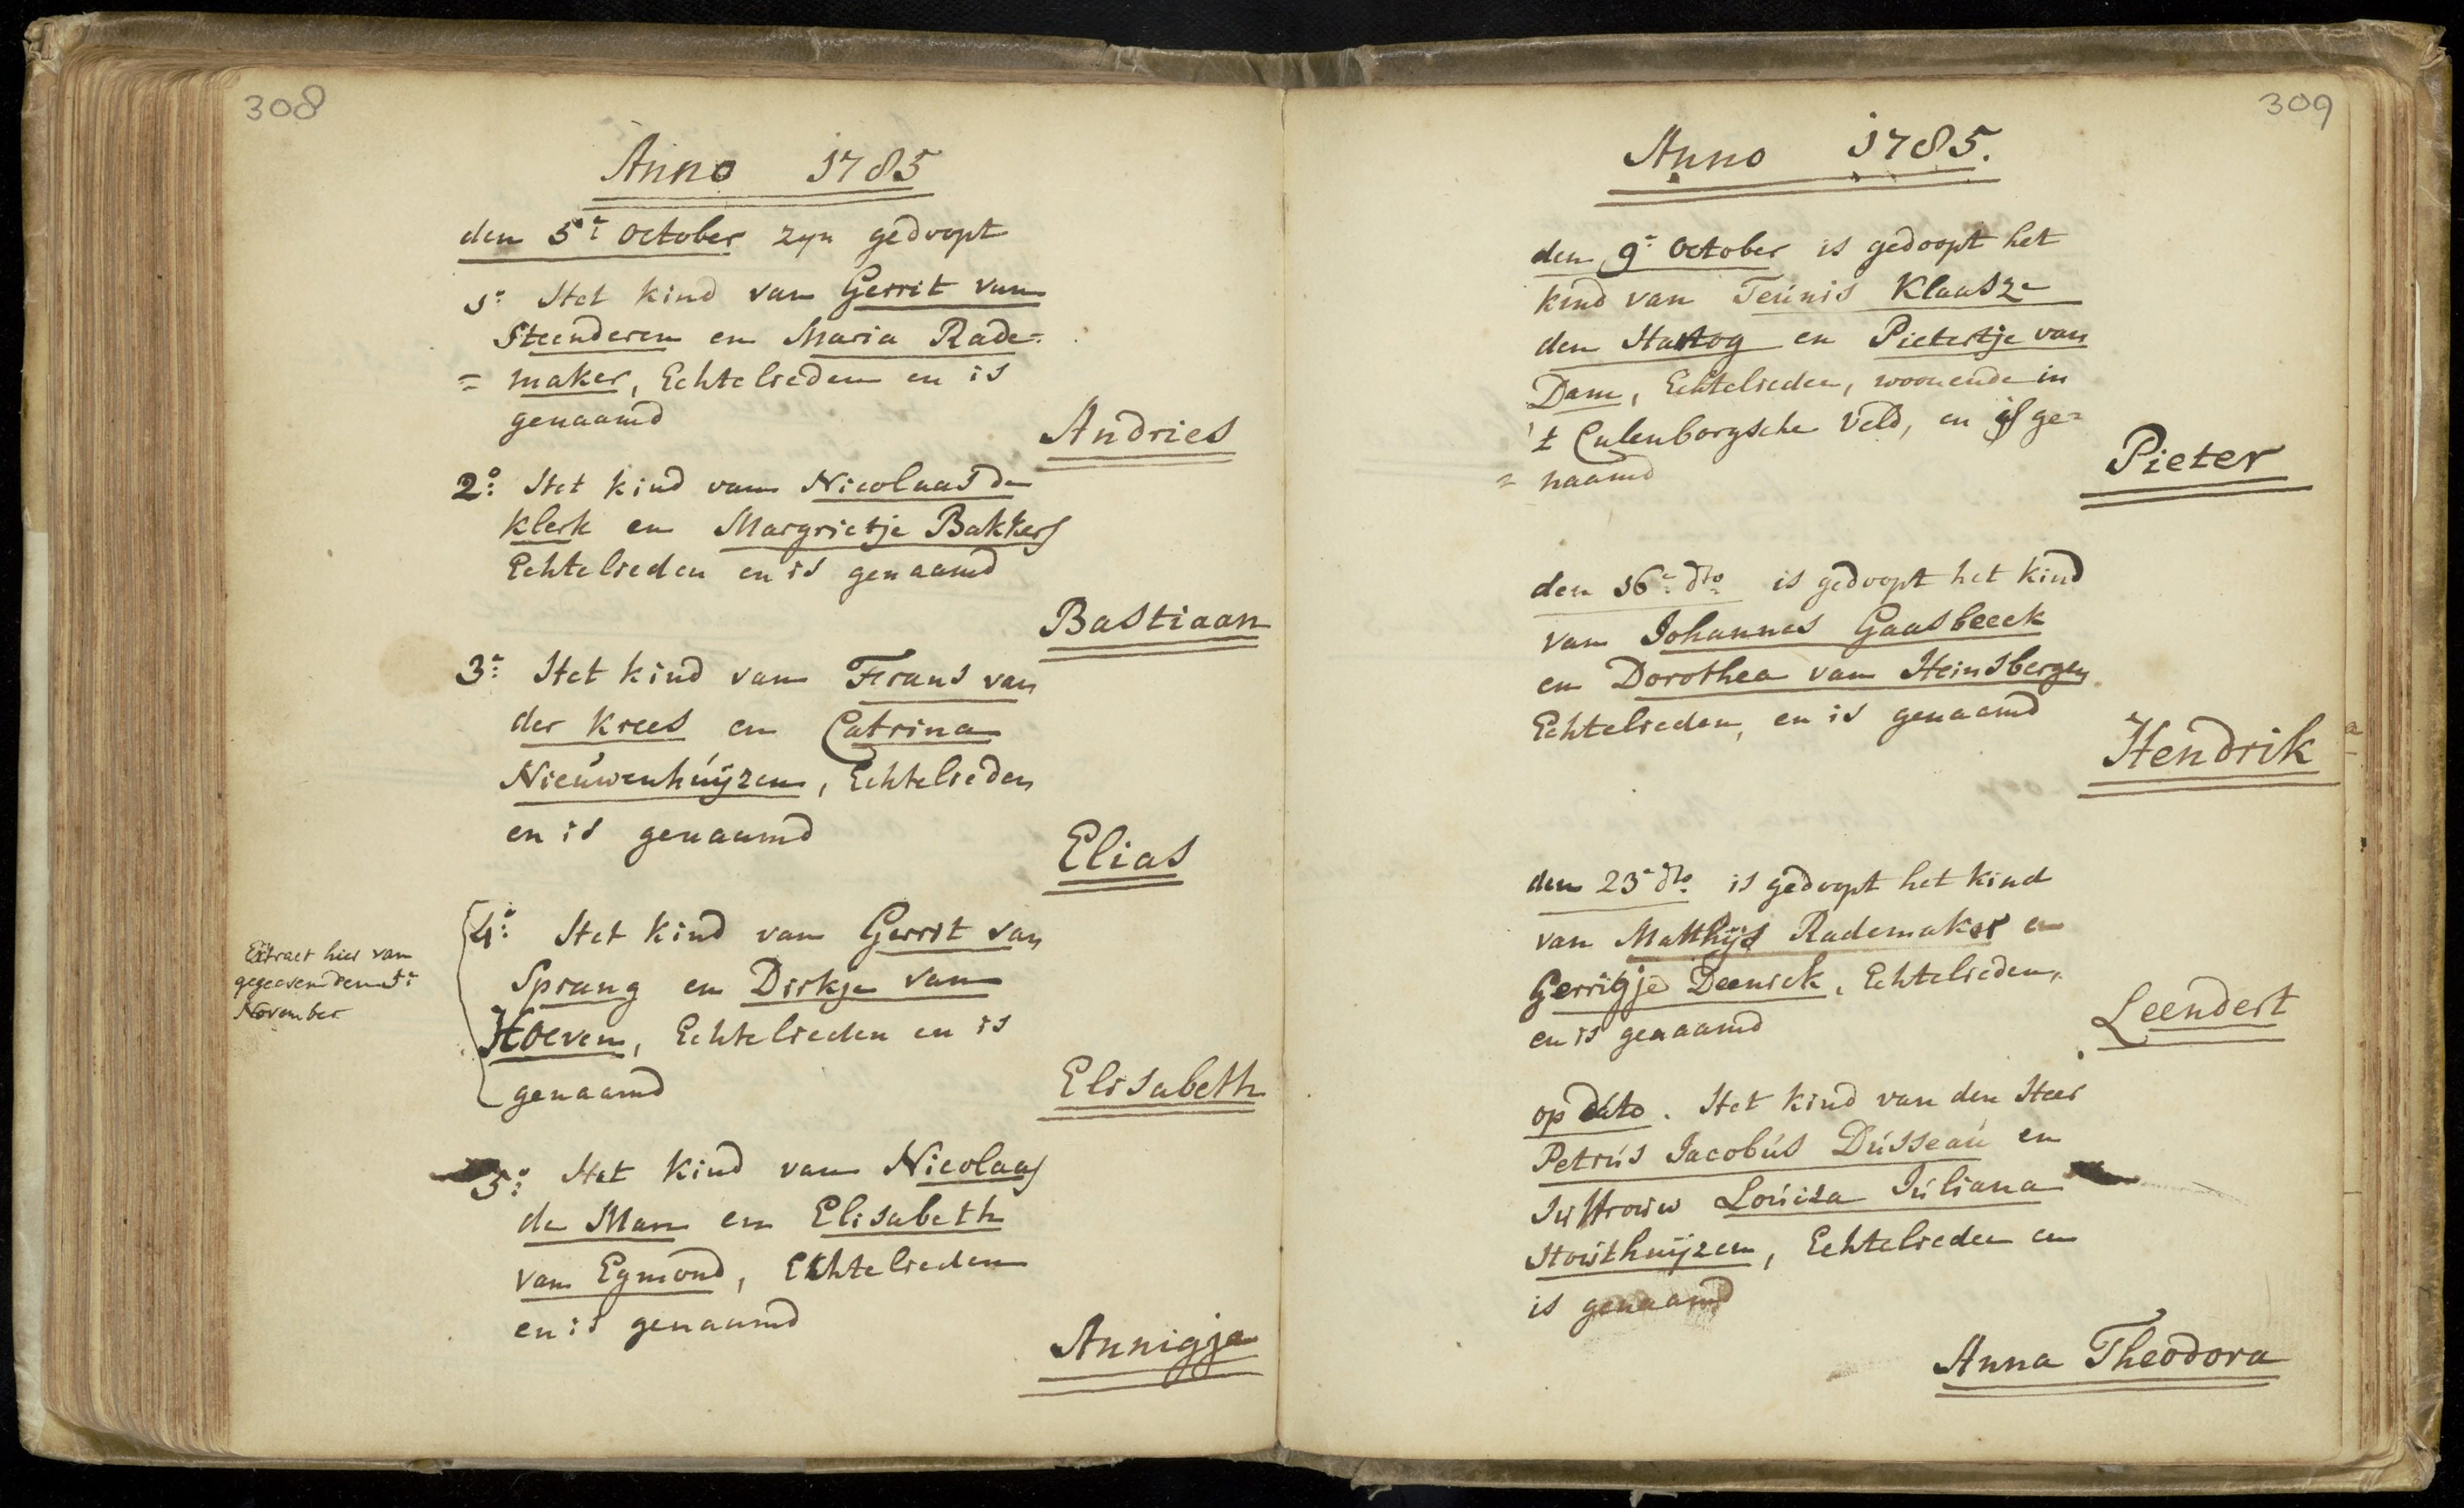 308
Anno 1785
den 5e October zyn gedoopt
1e Het kind van Gerrit van
Steenderen en Maria Rade=
= maker, Echtelieden en is
genaamd
Andries
2o: Het kind van Nicolaas de
Klerk en Margrietje Bakkers
Echtelieden en is genaamd
Bastiaan
3e: Het kind van Frans van
der Krees en Catrina
Nieuwenhuijzen, Echtelieden
en is genaamd
Elias
4o: Het kind van Gerrit van
Sprang en Dirkje van
Hoeven, Echtelieden en is
genaamd
Elisabeth
Extract hier van
gegeeven den 5e
November
5o: Het kind van Nicolaas
de Man en Elisabeth
van Egmond, Echtelieden
en is genaamd
Annigje
309
Anno 1785.
den 9e October is gedoopt het
kind van Teunis Klaasze
den Hartog en Pietertje van
Dam, Echtelieden, woonende in
't Culenborgsche Veld, en is ge=
= naamd
Pieter
den 16e dto is gedoopt het kind
van Johannes Gaasbeeck
en Dorothea van Heinsbergen
Echtelieden, en is genaamd
Hendrik
den 23e dto is gedoopt het kind
van Matthijs Rademaker en
Gerrigje Deenick, Echtelieden,
en is genaamd
Leendert
op dato. Het kind van den Heer
Petrus Jacobus Dusseau en
Juffrouw Louiza Juliana
Houthuijzen, Echtelieden en
is genaamd
Anna Theodora